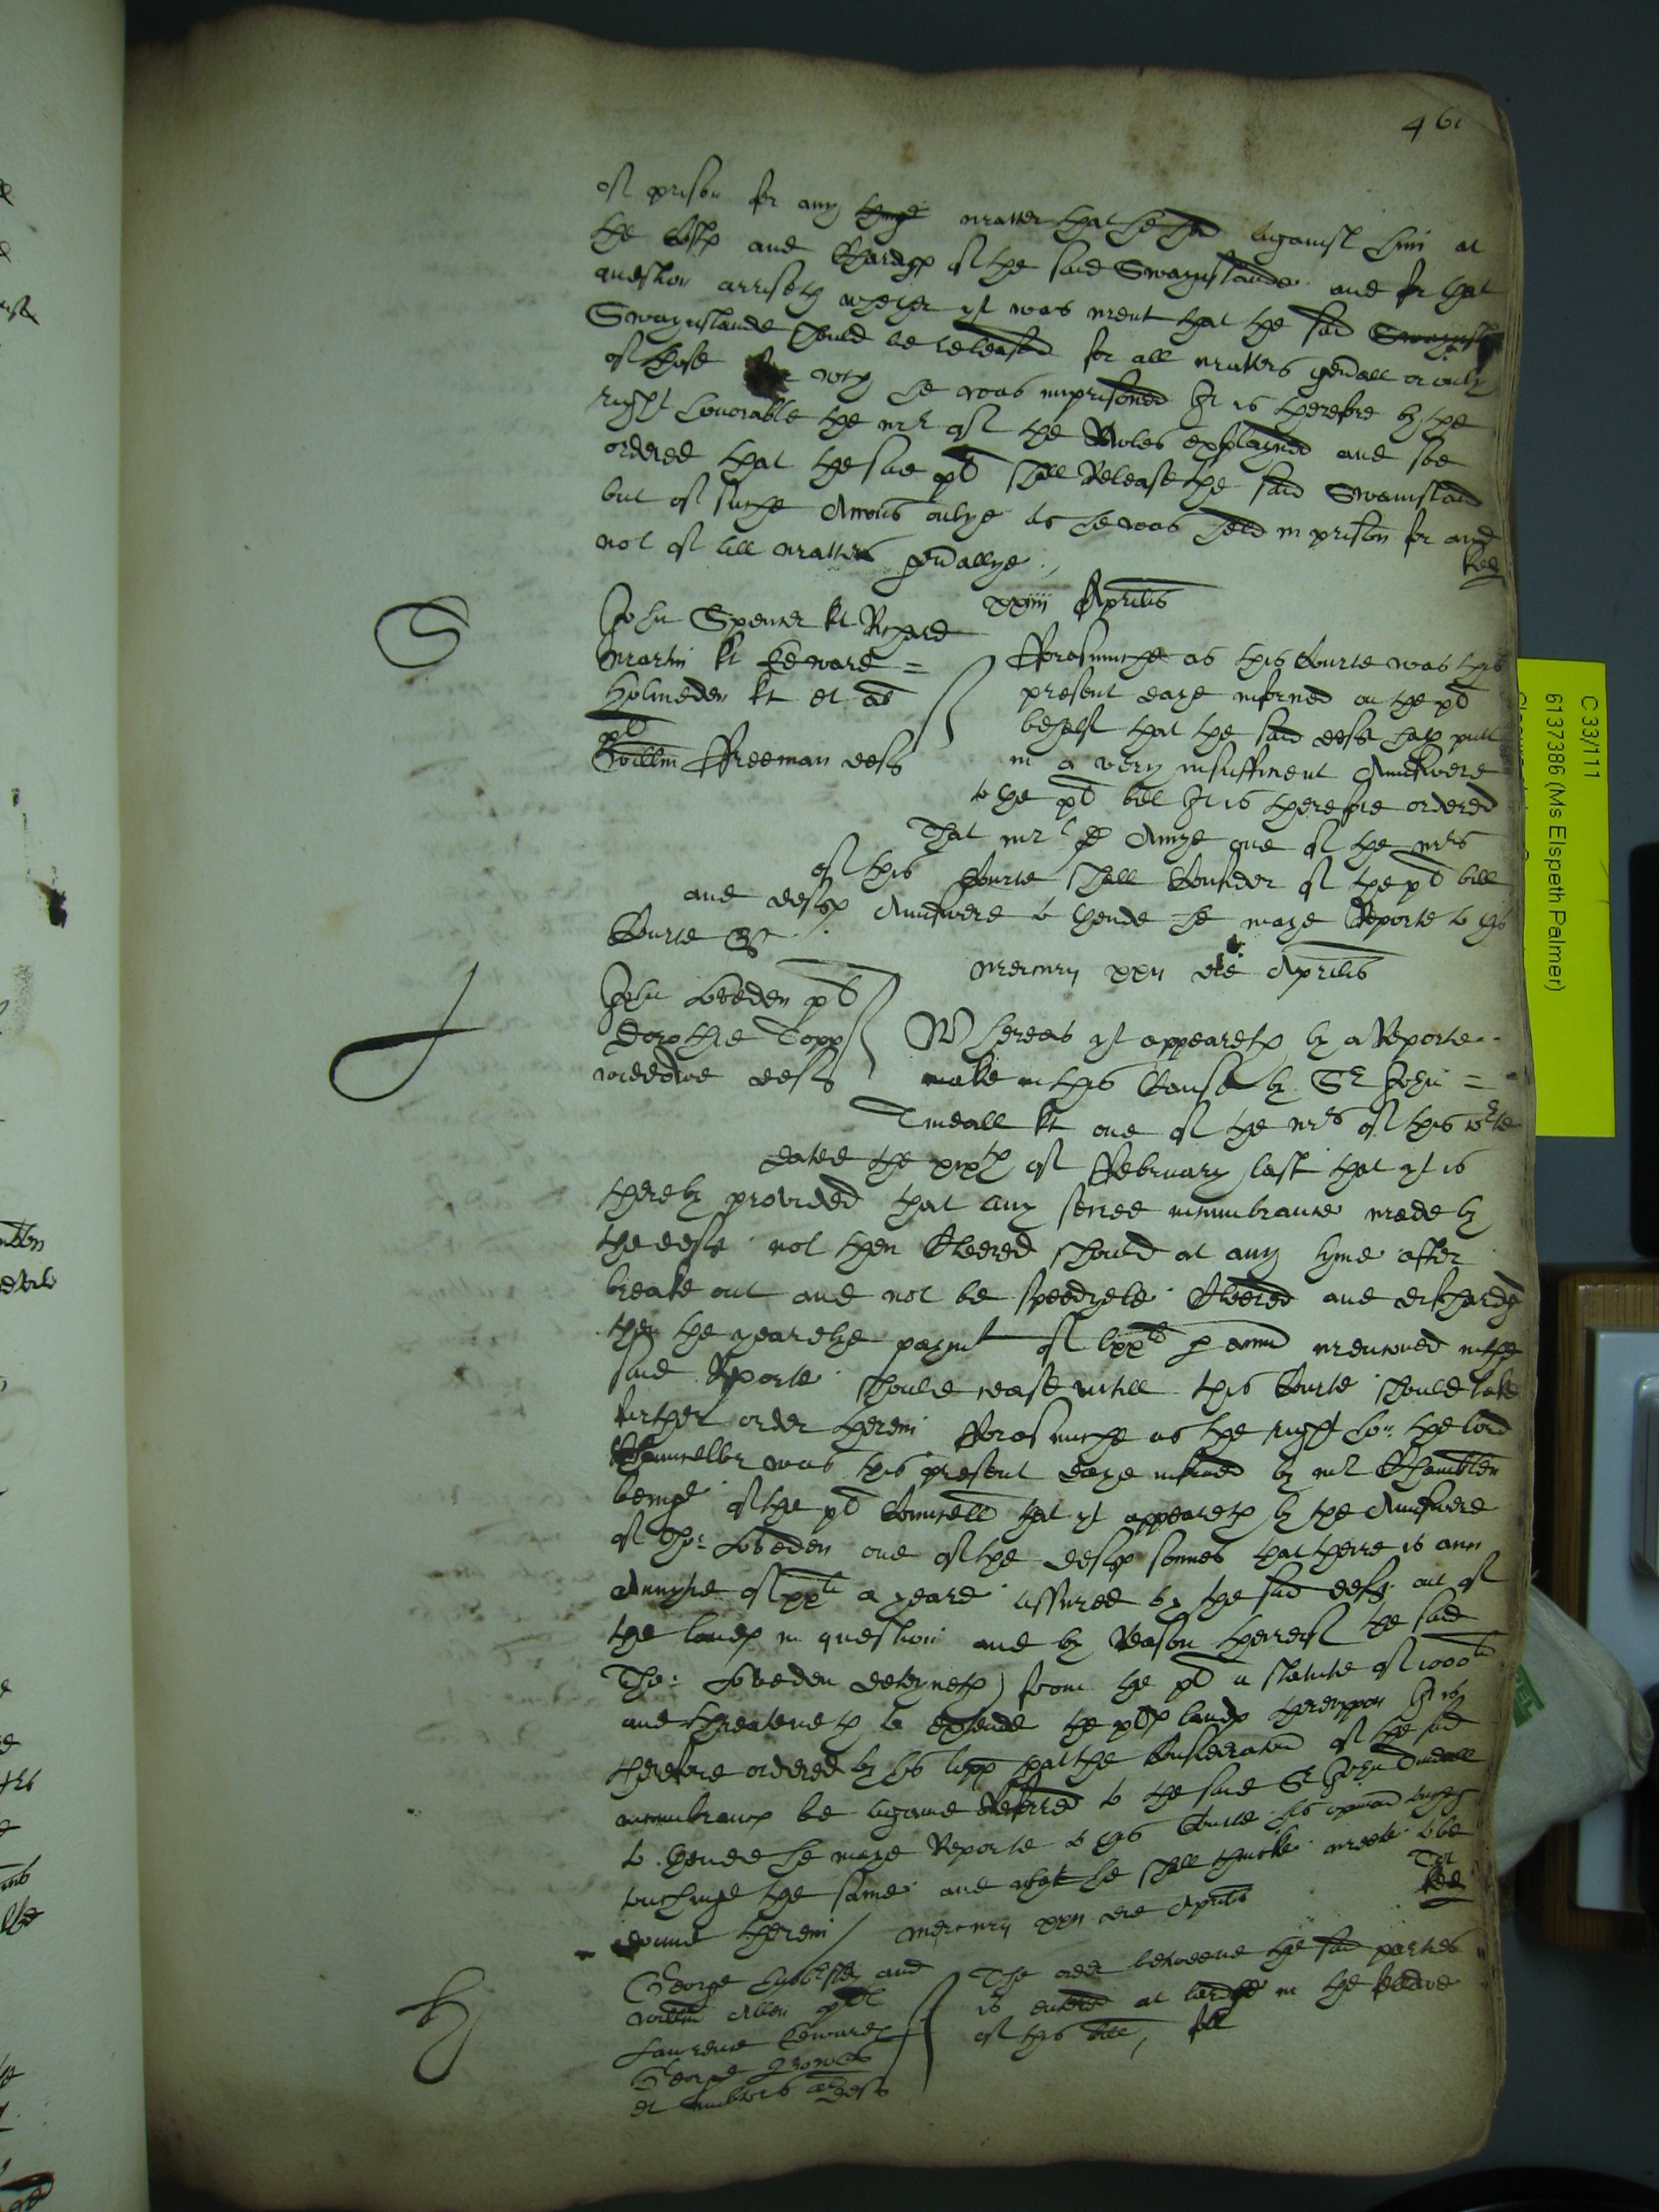 461
of prison for any thinge matter that he had against him at
the costs and Chardgs of the said Swaynslande and for that
question ariseth whether yt was ment that the said Swaynsl
Swaynslande should be released for all matters genall or only
of those for wch he was imprisoned It is therefore by the
right honorable the mr of the Rolles explayned and soe
ordered that the said pl shall Release the said Swainsland
but of suche Accons onlye as he was held in prison for and
not of all matters genallye
xxiiii Aprilis
S
John Spencer kt Richard
Martin kt Edward =
Holmeden kt et al
pl
Willm Ffreeman deft
Fforasmuche as this Courte was this
present daye informed on the pl
behalf that the said deft hath putt
in a very insufficient Aunswere
to the pl bill It is therefore ordered
That mr D Amye one of the mrs
of this Courte shall Consider of the pl bill
and defts Aunswere to thende he maye Reporte to this
Courte &c
Mercurij xxij die Aprilis
J
John Loveden pl
Dorothie Topp
weedowe deft
Whereas yt appeareth by a Reporte
made in this Cause by Sr John =
Tindall kt one of the mrs of this Corte
dated the xixth of Ffebruary last that yt is
thereby provided that any former incumbrance made by
the deft not then Cleered should at any tyme after
breake out and not be speedyele Cleered and dischardg
then the yearelye paymt of lxxl p annu mencioned in the
said Reporte should cease untill this Courte should take
further order therein Fforasmuche as the right ho: the lord
Chauncellor was this present daye informed by mr Chamblen
beinge of the pl Councell that yt appeareth by the Aunswere
of Tho: Loveden one of the defts sonnes that there is ann
Annuytie of xxl a yeare assured by the said deft out of
the lands in question and by Reason thereof the said
Tho: Loveden deteyneth from the pl a statute of 1000l
and threateneth to extende the pls lands thereuppon It is
therefore ordered by his lopp that the Consideracon of the said
incumbrancs be againe Referred to the said Sr John Tindall
to thende he maye Reporte to this Courte his opinion
touchinge the same and what he shall thincke meete to be
donne therein / Mercurij xxij die Aprilis
H
George and
Willm Allen pl
Lawrence Edwards
George
et multis al defts
The order betweene the said parties
is entred at lardge in the
of this